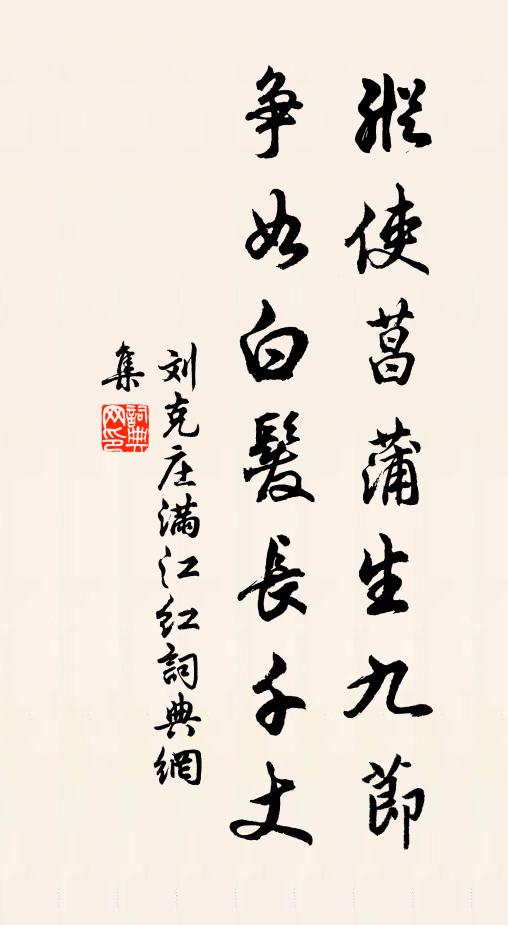 縱使菖蒲生九節
争如白髮長千丈
刘克庄满江红詞典網
集
詞典网印